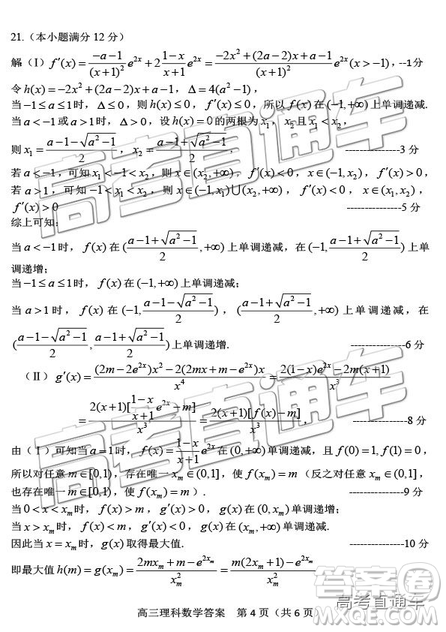 21.（本小题满分 12 分）
解（Ⅰ）f′(x)=\frac{-a-1}{(x+1)^2}e^{2x}+2\frac{1-x}{x+1}e^{2x}=\frac{-2x^2+(2a-2)x+a-1}{(x+1)^2}e^{2x}(x>-1)，--1分
令h(x)=-2x^2+(2a-2)x+a-1，Δ=4(a^2-1)，
当-1≤a≤1时，Δ≤0，则h(x)≤0，f′(x)≤0，所以f(x)在(-1,+∞)上单调递减.
当a<-1或a>1时，Δ>0，设h(x)=0的两根为x_1，x_2且x_1<x_2，
则x_1=\frac{a-1-\sqrt{a^2-1}}{2}，x_2=\frac{a-1+\sqrt{a^2-1}}{2}，--------------3分
若a<-1，可知x_1<-1<x_2，则x∈(-1,x_2)，f′(x)>0，x∈(x_2,+∞)，f′(x)<0，
若a>1，可知-1<x_1<x_2，则x∈(-1,x_1)∪(x_2,+∞)，f′(x)<0，x∈(x_1,x_2)，
f′(x)>0 --------------5分
综上可知：
当a<-1时，f(x)在(\frac{a-1+\sqrt{a^2-1}}{2},+∞)上单调递减，在(-1,\frac{a-1+\sqrt{a^2-1}}{2})上单
调递增；
当-1≤a≤1时，f(x)在(-1,+∞)上单调递减；
当a>1时，f(x)在(-1,\frac{a-1-\sqrt{a^2-1}}{2})，(\frac{a-1+\sqrt{a^2-1}}{2},+∞)上单调递减，在
(\frac{a-1-\sqrt{a^2-1}}{2},\frac{a-1+\sqrt{a^2-1}}{2})上单调递增. --------------6分
（Ⅱ）g′(x)=\frac{(2m-2e^{2x})x^2-2(2mx+m-e^{2x})x}{x^4}=\frac{2(1-x)e^{2x}-2m(x+1)}{x^3}
=\frac{2(x+1)[\frac{1-x}{x+1}e^{2x}-m]}{x^3}=\frac{2(x+1)[f(x)-m]}{x^3}，--------------8分
由（Ⅰ）可知当a=1时，f(x)=\frac{1-x}{x+1}e^{2x}在(0,+∞)上单调递减，
所以对任意m∈[0,1)，存在唯一x_m∈(0,1]，使f(x_m)=m（反之对任意x_m∈(0,1]，
也存在唯一m∈[0,1)，使f(x_m)=m）. --------------9分
当0<x<x_m时，f(x)>m，g′(x)>0，g(x)单调递增；
当x>x_m时，f(x)<m，g′(x)<0，g(x)单调递减.
因此当x=x_m时，g(x)取得最大值. --------------10分
即最大值h(m)=g(x_m)=\frac{2mx_m+m-e^{2x_m}}{x_m^2}=\frac{m(2x_m+1)-e^{2x_m}}{x_m^2}
高三理科数学答案 第 4 页（共 6 页）
高考直通车
高考直通车
高考直通车
答案圈